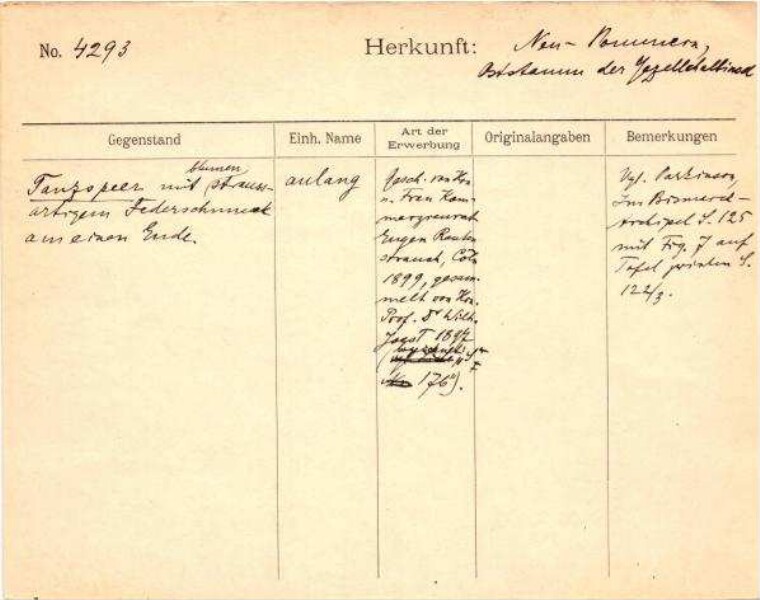 No. 4293
Herkunft: Neu-Pommern,
Oststamm der Gazellehalbinsel
Gegenstand
Einh. Name
Art der
Erwerbung
Originalangaben
Bemerkungen
blumen
Tanzspeer mit strauss-
artigem Federschmuck
am einen Ende.
aulang
Gesch. von Hrn
u. Frau Kom-
merzienrat
Eugen Rauten
strauch, Cöln
1899, gesam-
melt von Hrn.
Prof. Dr Wilh.
Joest 1897
176").
Vgl. Parkinson,
Im Bismarck-
Archipel S. 125
mit Fig. 7 auf
Tafel zwischen S.
122/3.